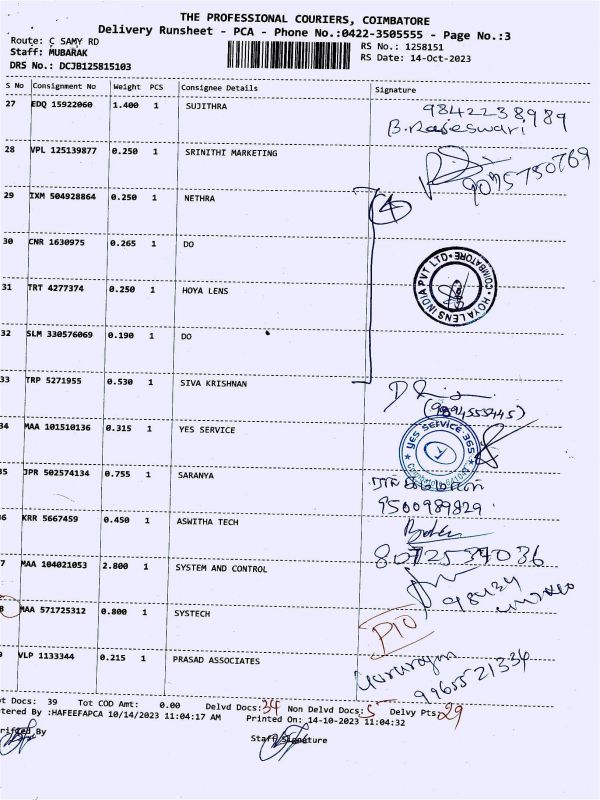 THE PROFESSIONAL COURIERS, COIMBATORE
Delivery Runsheet - PCA - Phone No.:0422-3505555 - Page No.:3
Route: C SAMY RD
RS No.: 1258151
Staff: MUBARAK
RS Date: 14-Oct-2023
DRS No.: DCJB125815103
S No Consignment No Weight PCS Consignee Details Signature
27 EDQ 15922060 1.400 1 SUJITHRA 9842238989
B.Rajeswari
28 VPL 125139877 0.250 1 SRINITHI MARKETING 9095750769
29 IXM 504928864 0.250 1 NETHRA
4
30 CNR 1630975 0.265 1 DO
HOYA LENS INDIA PVT LTD. COIMBATORE
31 TRT 4277374 0.250 1 HOYA LENS
32 SLM 330576069 0.190 1 DO
33 TRP 5271955 0.530 1 SIVA KRISHNAN
34 MAA 101510136 0.315 1 YES SERVICE
YES SERVICE 365
35 JPR 502574134 0.755 1 SARANYA
9500989829
36 KRR 5667459 0.450 1 ASWITHA TECH
8072534036
37 MAA 104021053 2.800 1 SYSTEM AND CONTROL
38 MAA 571725312 0.800 1 SYSTECH
39 VLP 1133344 0.215 1 PRASAD ASSOCIATES
9965521334
ot Docs: 39 Tot COD Amt: 0.00 Delvd Docs: 34 Non Delvd Docs: 5 Delvy Pts: 29
tered By :HAFEEFAPCA 10/14/2023 11:04:17 AM Printed On: 14-10-2023 11:04:32
rified By Staff Signature